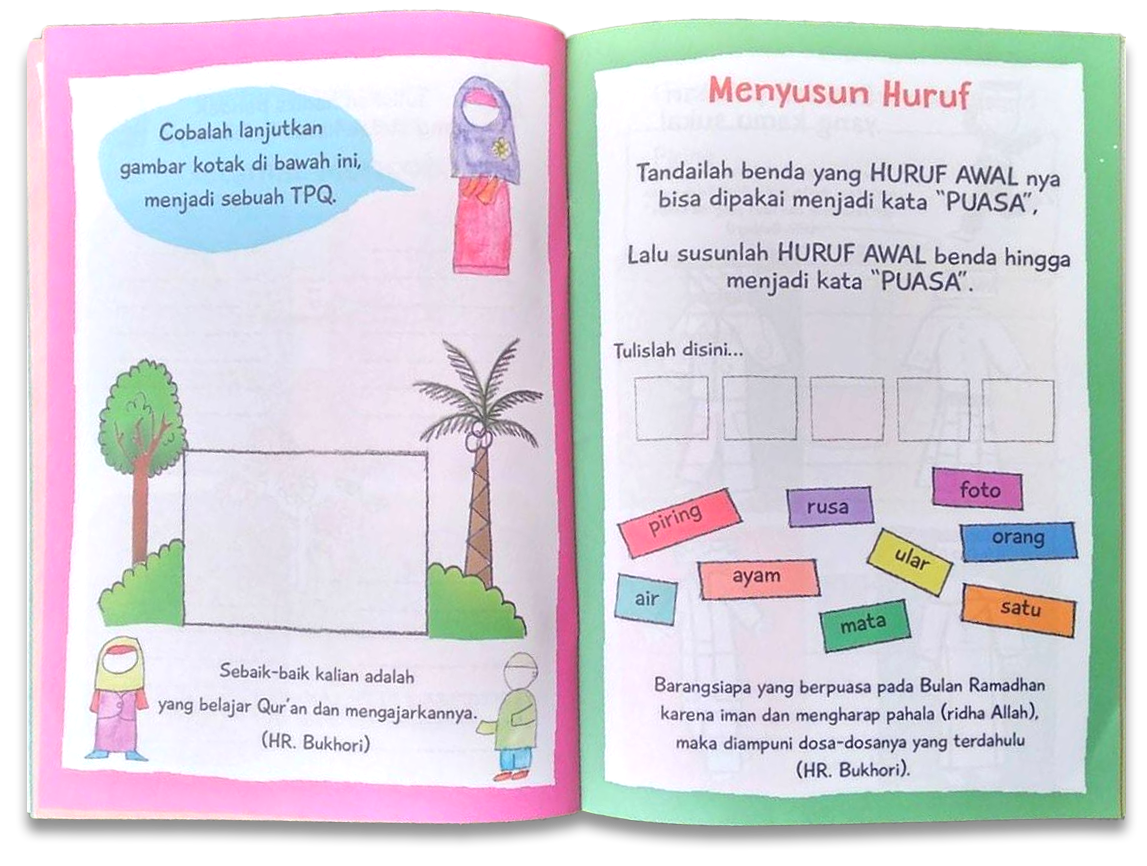 Cobalah lanjutkan
gambar kotak di bawah ini,
menjadi sebuah TPQ.
Sebaik-baik kalian adalah
yang belajar Qur'an dan mengajarkannya.
(HR. Bukhori)
Menyusun Huruf
Tandailah benda yang HURUF AWAL nya
bisa dipakai menjadi kata "PUASA",
Lalu susunlah HURUF AWAL benda hingga
menjadi kata "PUASA".
Tulislah disini...
piring
rusa
foto
orang
ular
ayam
air
satu
mata
Barangsiapa yang berpuasa pada Bulan Ramadhan
karena iman dan mengharap pahala (ridha Allah),
maka diampuni dosa-dosanya yang terdahulu
(HR. Bukhori).